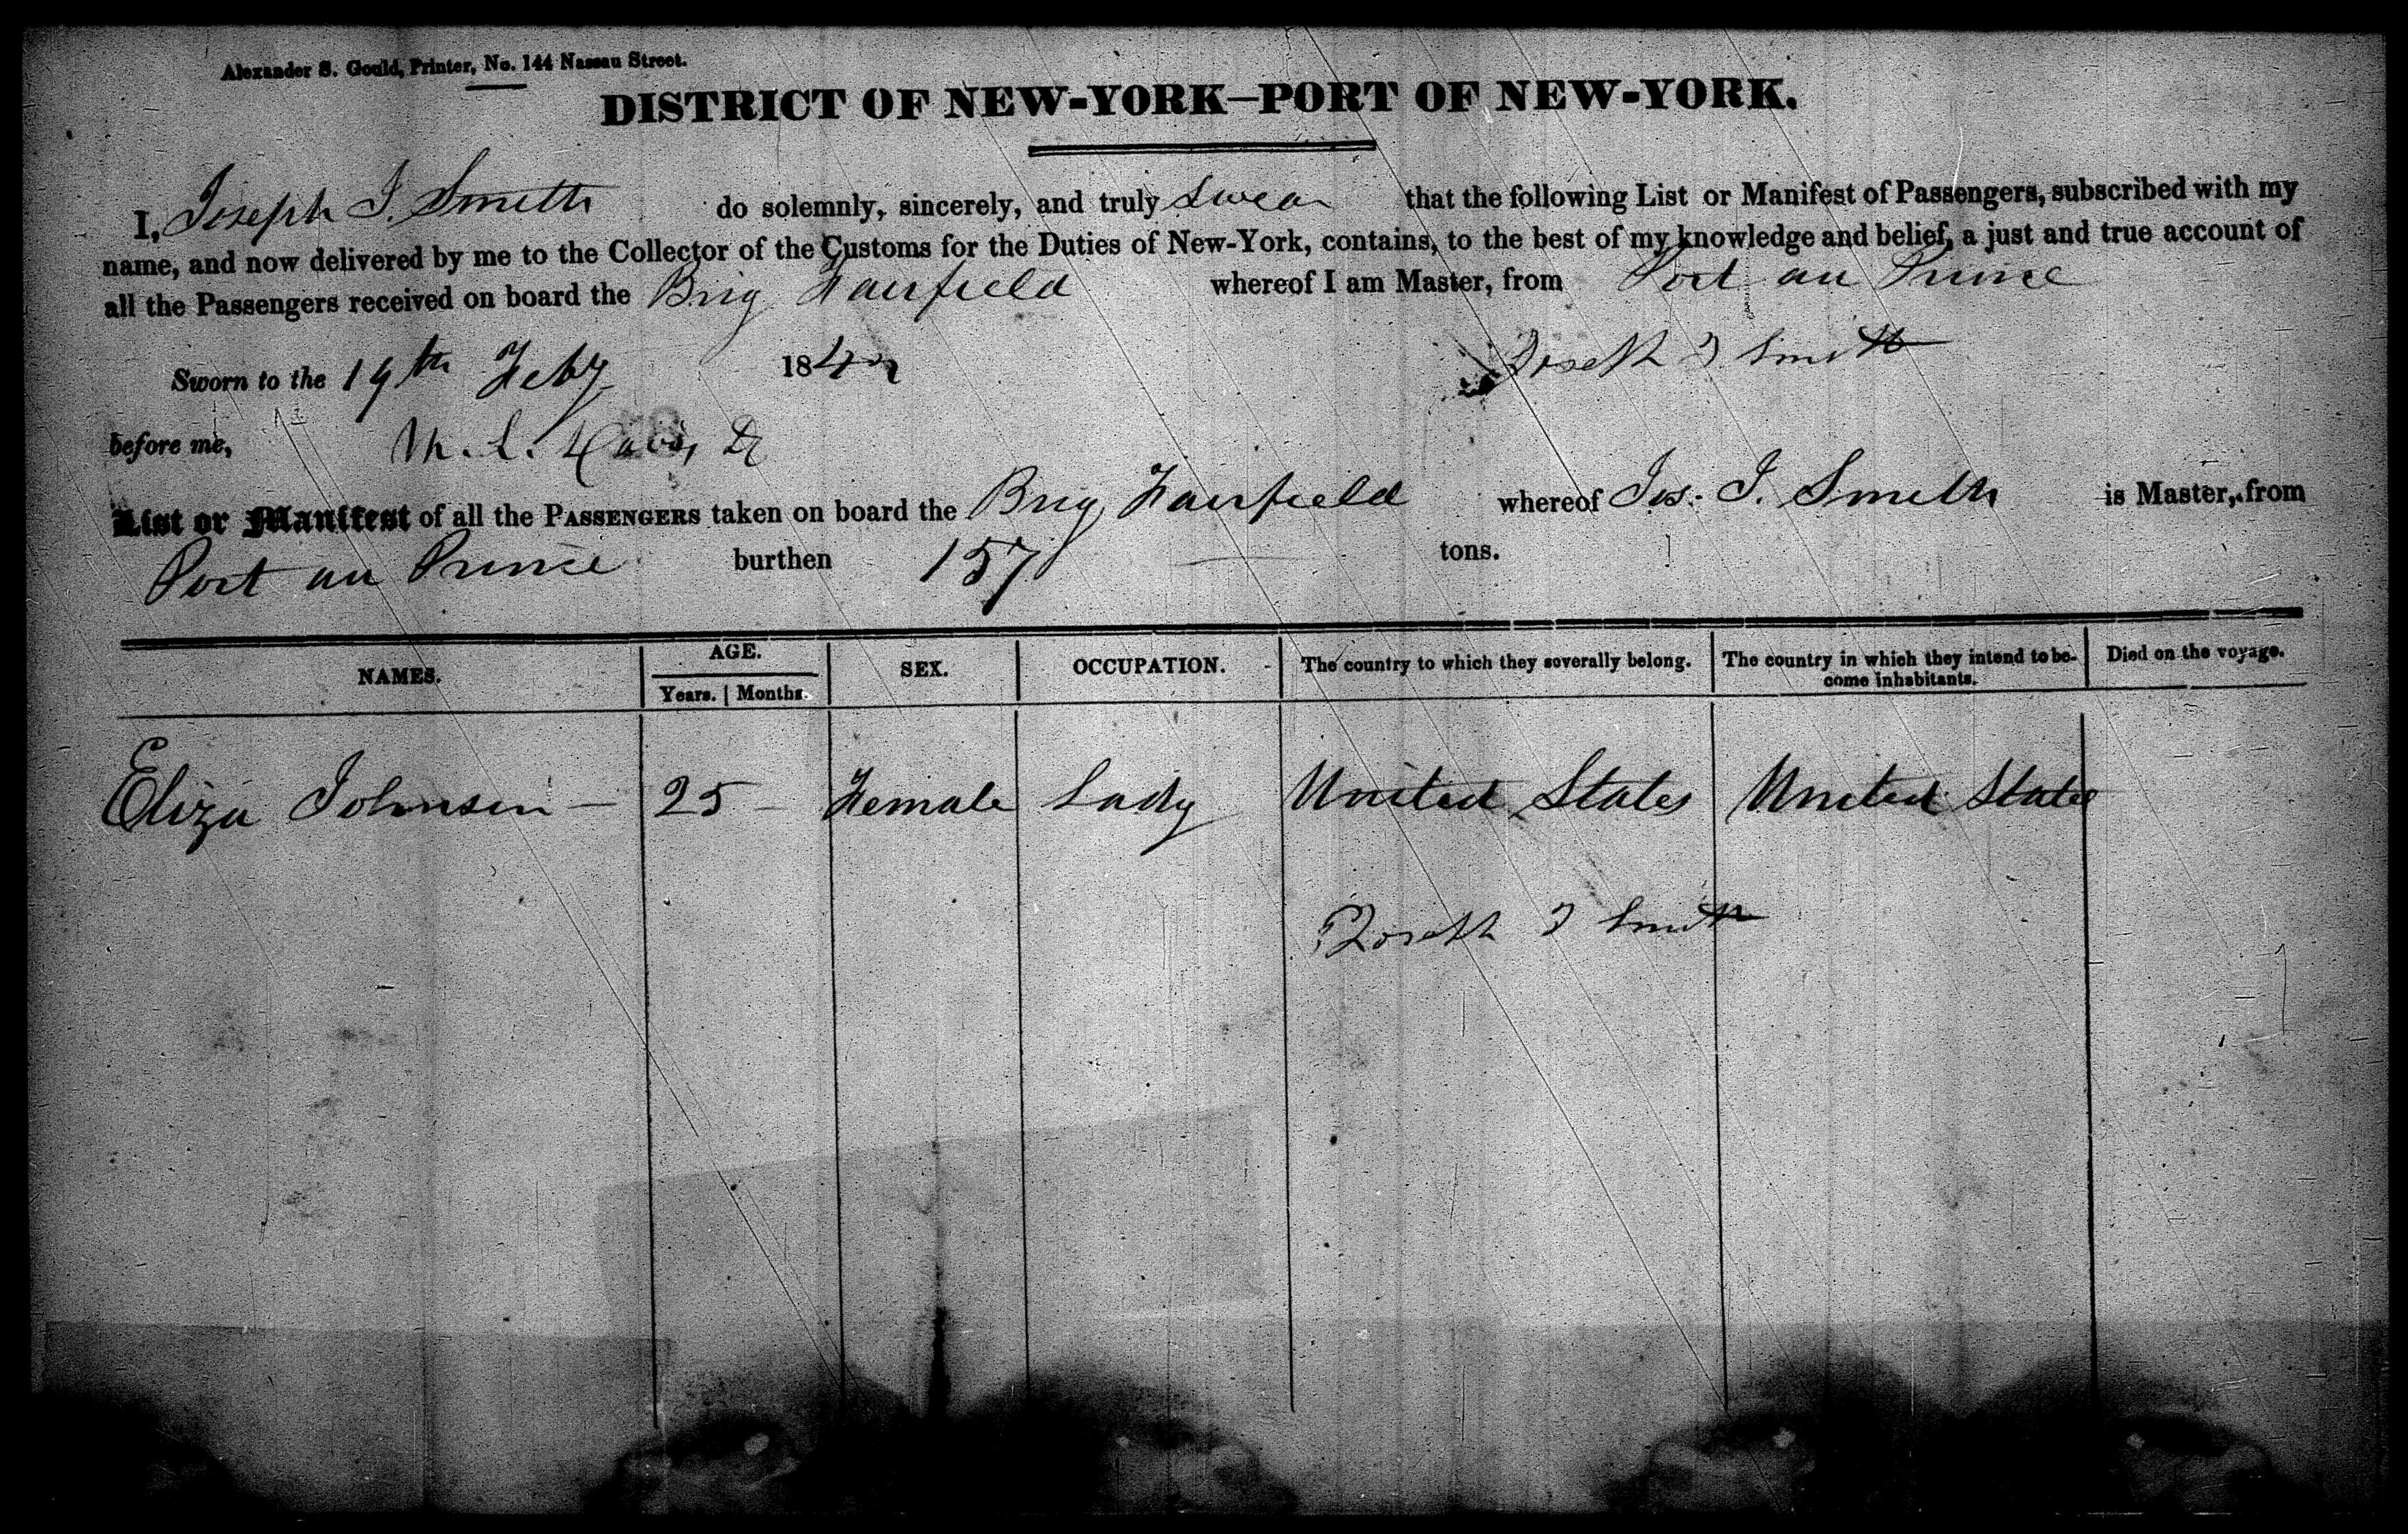 Alexander S. Gould, Printer, No. 144 Nassau Street.
DISTRICT OF NEW-YORK—PORT OF NEW-YORK.
I, Joseph J. Smith do solemnly, sincerely, and truly swear that the following List or Manifest of Passengers, subscribed with my
name, and now delivered by me to the Collector of the Customs for the Duties of New-York, contains, to the best of my knowledge and belief, a just and true account of
all the Passengers received on board the Brig Fairfield whereof I am Master, from Port au Prince
Sworn to the 19th Feby 1842 Joseph J Smith
before me,
List or Manifest of all the PASSENGERS taken on board the Brig Fairfield whereof Jos. J. Smith is Master, from
Port au Prince burthen 157 tons.
NAMES. AGE. SEX. OCCUPATION. The country to which they severally belong. The country in which they intend to become inhabitants. Died on the voyage.
Years. | Months.
Eliza Johnson — 25 — Female Lady United States United States
Joseph J Smith